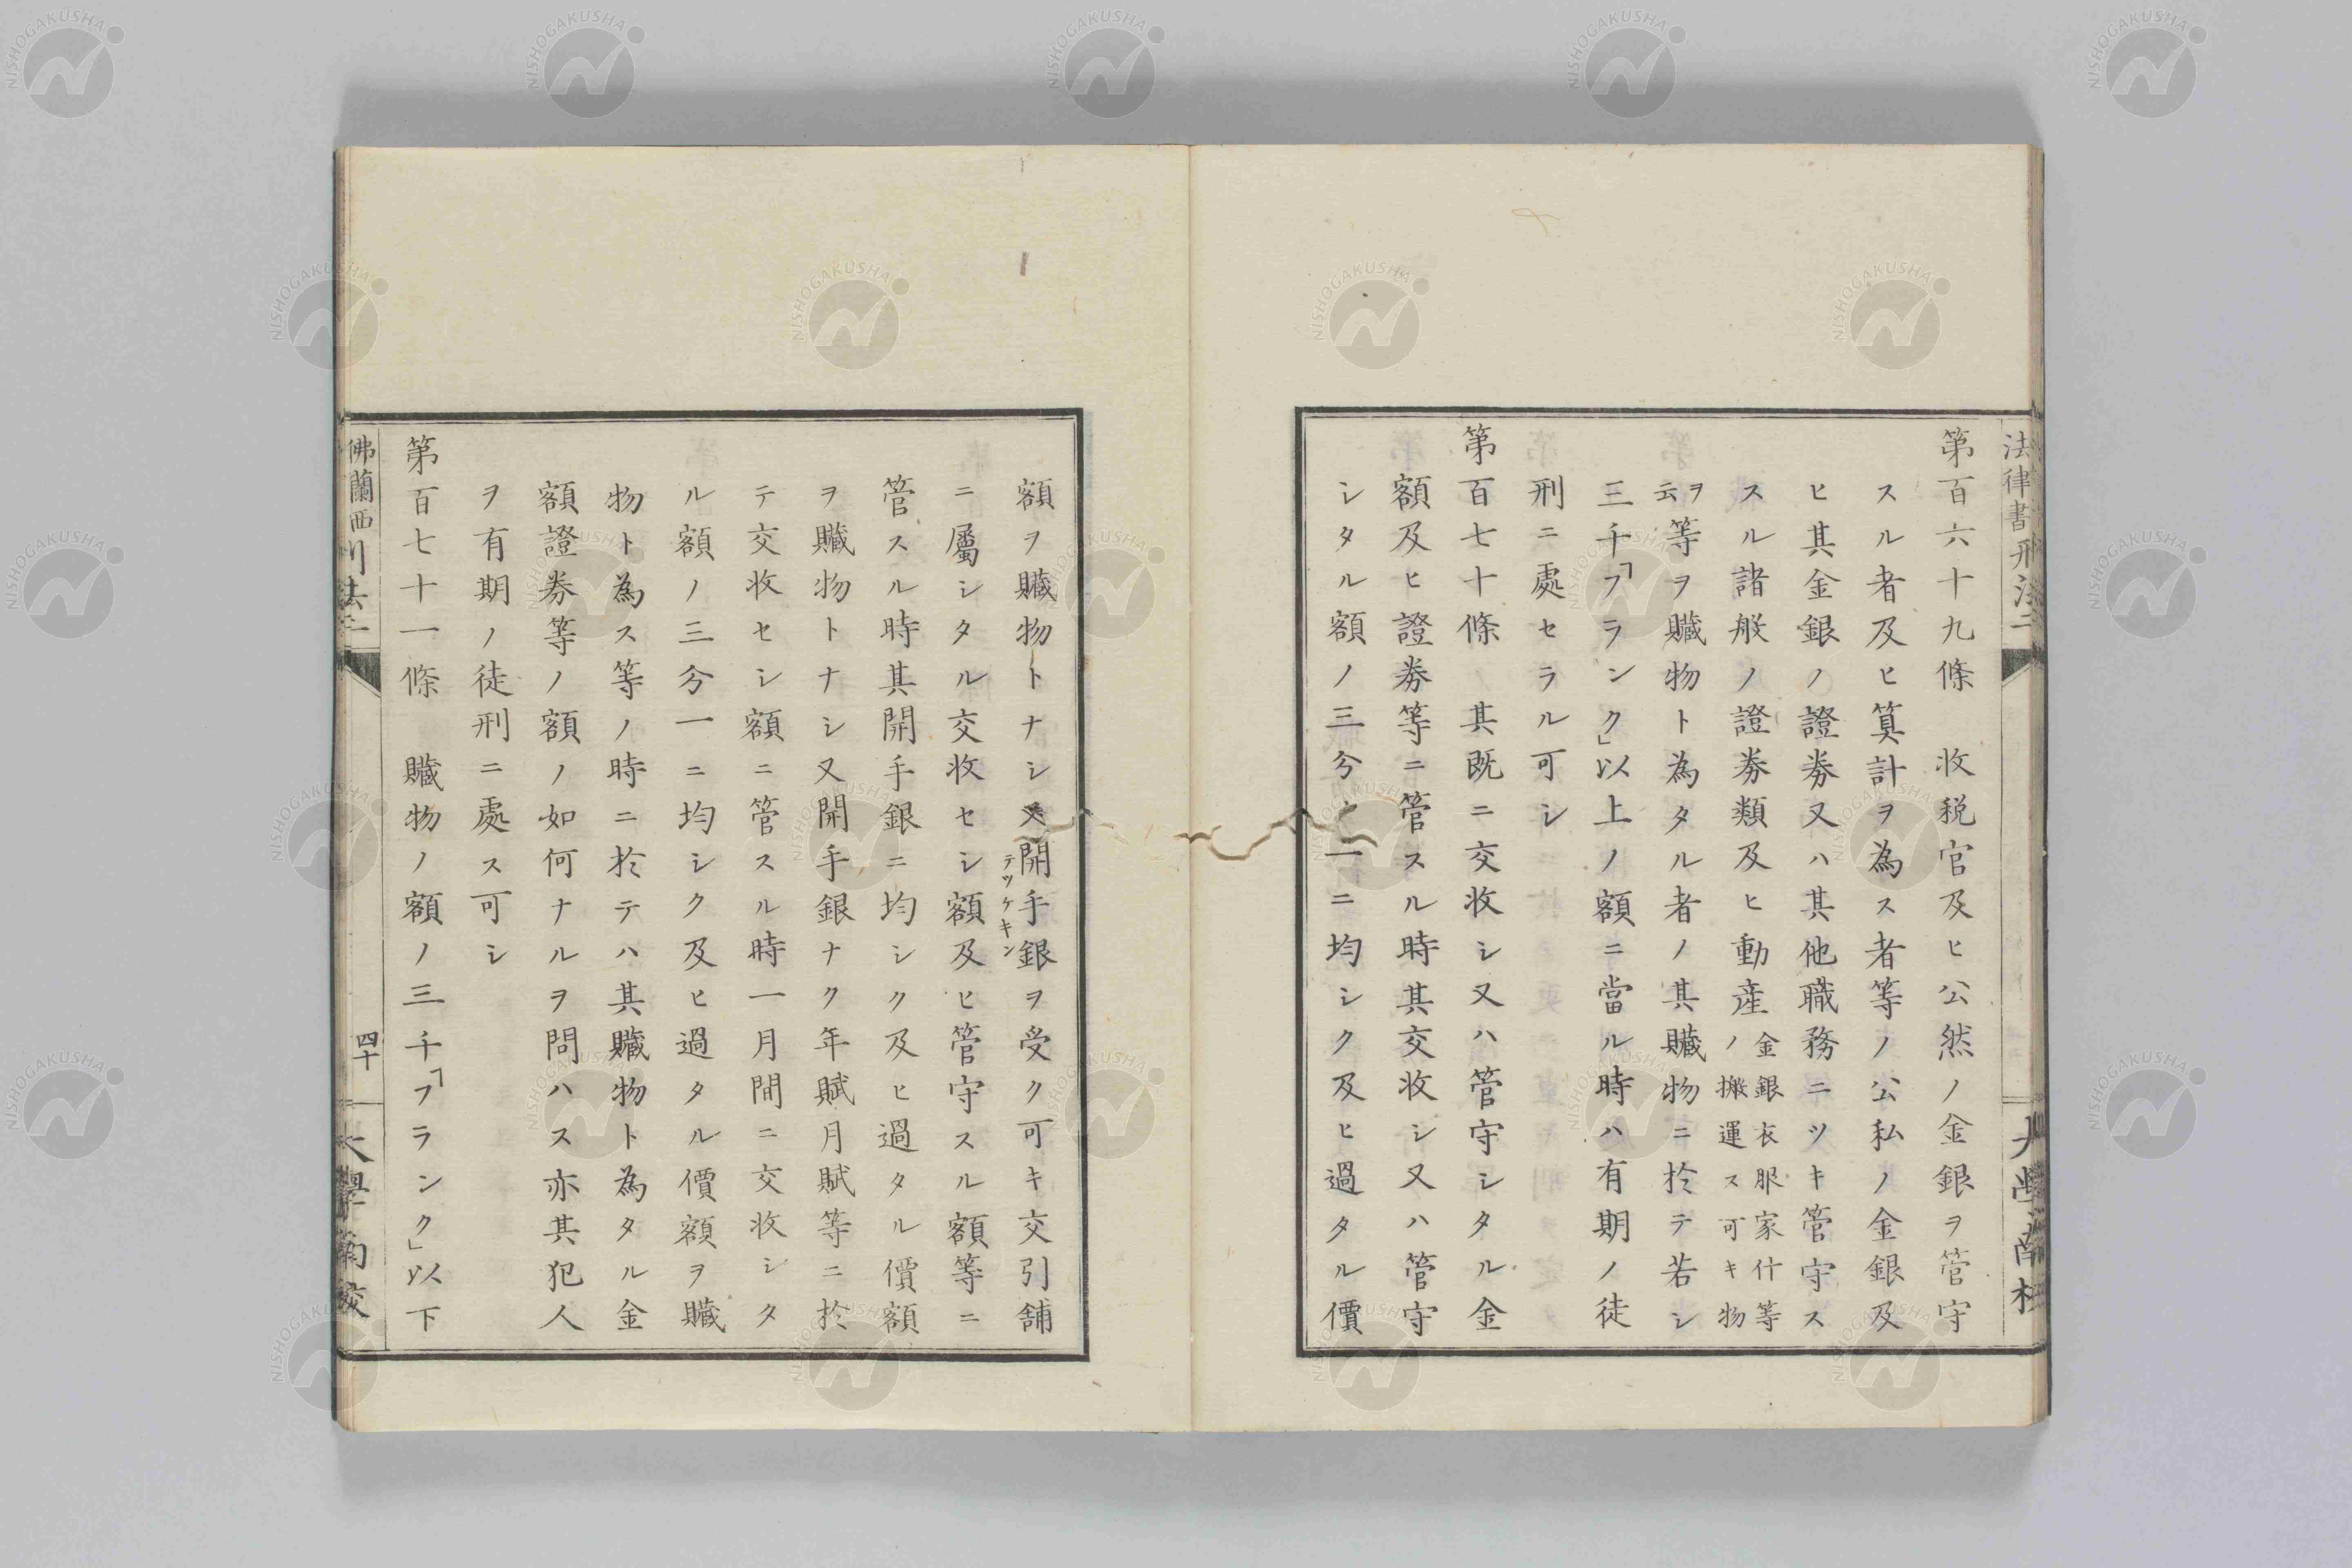 法律書刑法二
大學南校
第百六十九條　收税官及ヒ公然ノ金銀ヲ管守
スル者及ヒ算計ヲ為ス者等ノ公私ノ金銀及
ヒ其金銀ノ證券又ハ其他職務ニツキ管守ス
スル諸般ノ證券類及ヒ動産金銀衣服家什等ノ搬運ス可キ物
ヲ云等ヲ贓物ト為タル者ノ其贓物ニ於テ若シ
三千「フランク」以上ノ額ニ當ル時ハ有期ノ徒
刑ニ處セラル可シ
第百七十條　其既ニ交收シ又ハ管守シタル金
額及ヒ證券等ニ管スル時其交收シ又ハ管守
シタル額ノ三分ノ一ニ均シク及ヒ過タル價
額ヲ贓物トナシ又開手銀ヲ受ク可キ交引舗
テツケキン
ニ屬シタル交收セシ額及ヒ管守スル額等ニ
管スル時其開手銀ニ均シク及ヒ過タル價額
ヲ贓物トナシ又開手銀ナク年賦月賦等ニ於
テ交收セシ額ニ管スル時一月間ニ交收シタ
ル額ノ三分一ニ均シク及ヒ過タル價額ヲ贓
物ト為ス等ノ時ニ於テハ其贓物ト為タル金
額證券等ノ額ノ如何ナルヲ問ハス亦其犯人
ヲ有期ノ徒刑ニ處ス可シ
第百七十一條　贓物ノ額ノ三千「フランク」以下
佛蘭西刑法二
四十
大學南校
NISHOGAKUSHA